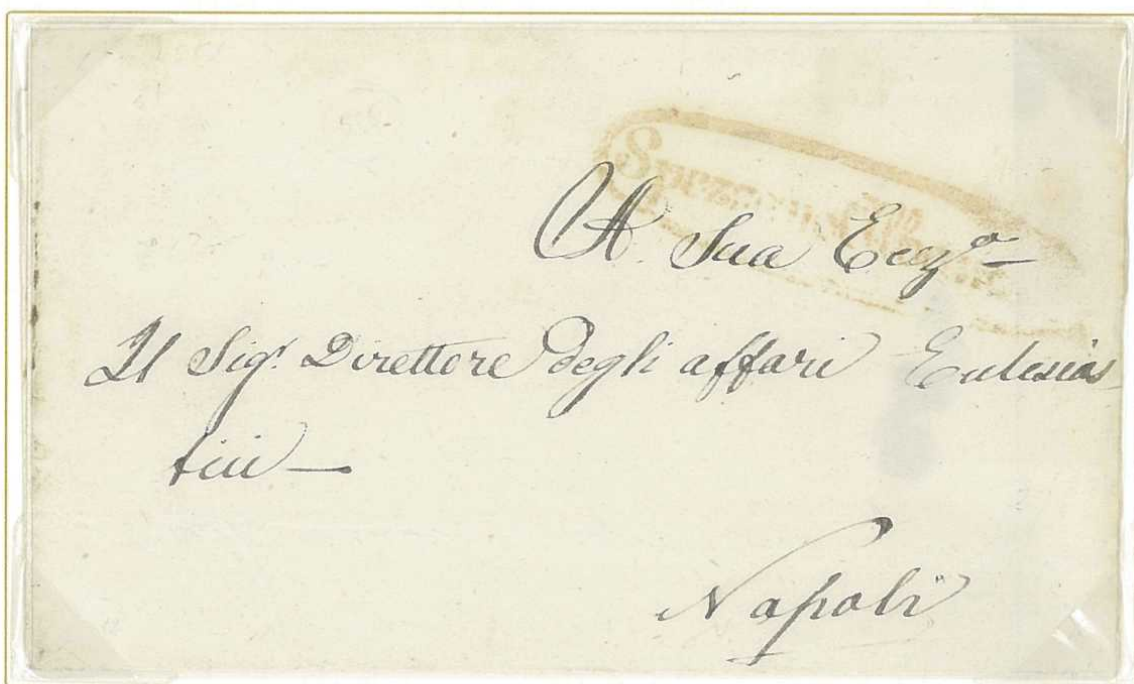 A. Sua Ecczª
Il Sigʳ Direttore degli affari Ecclesias
tici
Napoli